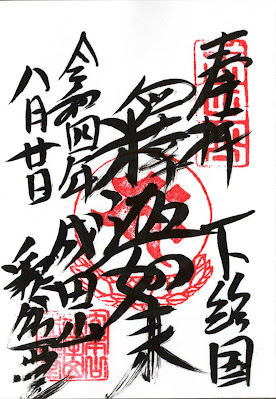 奉拝
下総国
釋迦如来
令和四年
八月廿日
成田山
釈迦堂